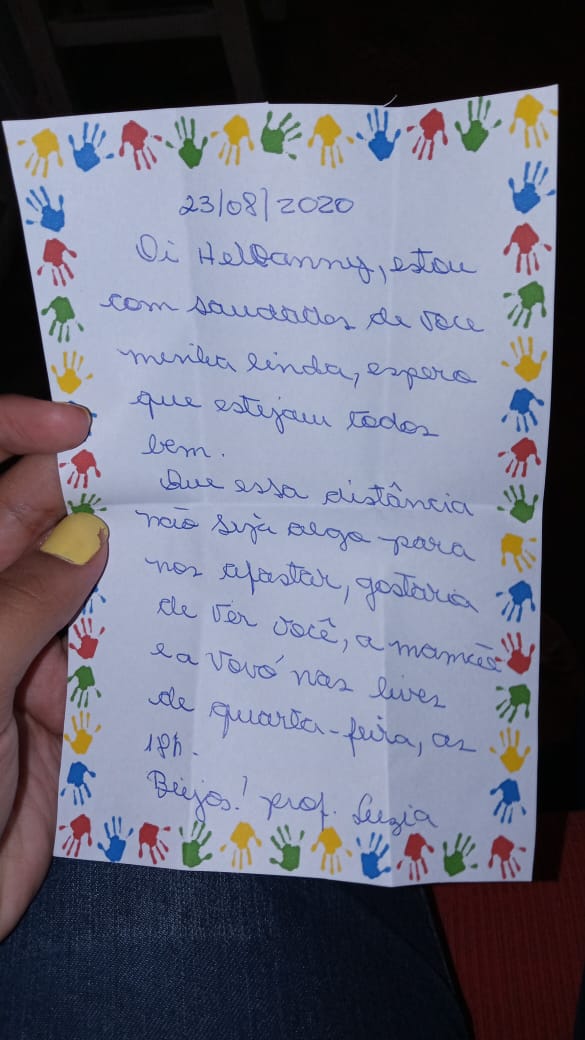 23/08/2020
Oi Hellanny, estou
com saudades de voce
minha linda, espero
que estejam todos
bem.
Que essa distância
não seja algo para
nos afastar, gostaria
de ver você, a mamãe
e a vovó nas lives
de quarta-feira, as
18h.
Beijos! prof. Luzia